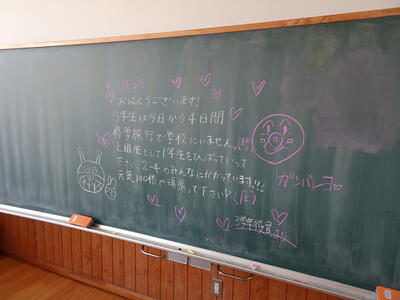 おはようございます!
3年生は今日から4日間
修学旅行で学校にいません。
上級生として1年生をひっぱっていって
下さい。2-4のみんなにかかっています!!!
元気100倍で頑張って下さい
ガンバレヨ
3学年役員より